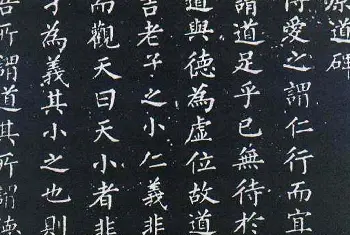 原道碑
博愛之謂仁行而宜
謂道足乎已無待於
道與德為虛位故道
言老子之小仁義非
而觀天曰天小者非
子為義其小之也則
吾所謂道其所謂德